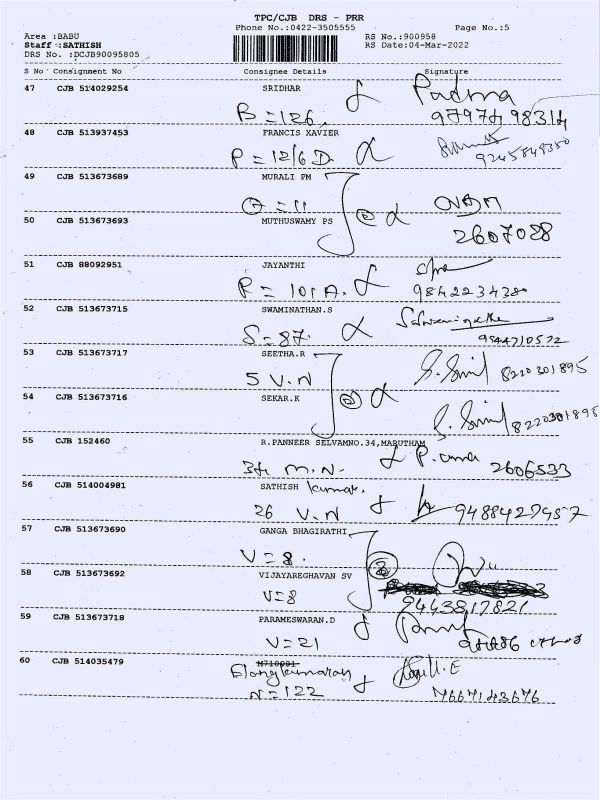 TPC/CJB DRS - PRR
Phone No.:0422-3505555 Page No.:5
Area :BABU RS No.:900958
Staff :SATHISH RS Date:04-Mar-2022
DRS No. :DCJB90095805
S No Consignment No Consignee Details Signature
47 CJB 514029254 SRIDHAR Padma
B = 126 97974 98314
48 CJB 513937453 FRANCIS XAVIER
P = 12/6 D. 9245849380
49 CJB 513673689 MURALI PM
= 11
50 CJB 513673693 MUTHUSWAMY PS 2607028
51 CJB 88092951 JAYANTHI
P = 101 A. 9842234380
52 CJB 513673715 SWAMINATHAN.S
S = 87. 9544710572
53 CJB 513673717 SEETHA.R
5 V.N 8220301895
54 CJB 513673716 SEKAR.K
8220301895
55 CJB 152460 R.PANNEER SELVAMNO.34,MARUTHAM
34 M.N. P. uma 2606533
56 CJB 514004981 SATHISH kumar.
26 V.N 9488427457
57 CJB 513673690 GANGA BHAGIRATHI
V = 8.
58 CJB 513673692 VIJAYAREGHAVAN SV
V = 8 9443817821
59 CJB 513673718 PARAMESWARAN.D
V = 21
60 CJB 514035479
Elangkumaran
N = 122 7667143676